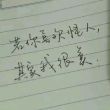 若你喜欢怪人,
其实我很美.